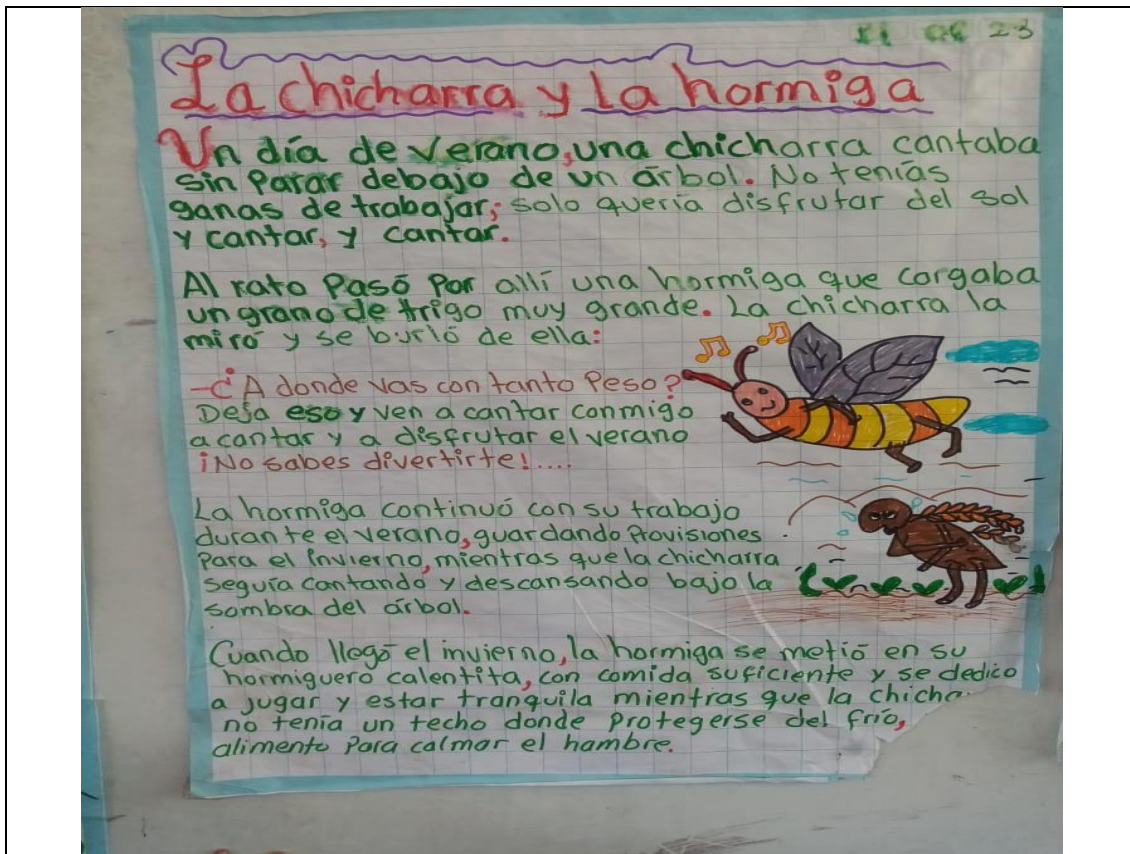 23
La chicharra y la hormiga
Un día de verano, una chicharra cantaba
sin parar debajo de un árbol. No tenías
ganas de trabajar; solo quería disfrutar del sol
y cantar, y cantar.
Al rato Pasó Por allí una hormiga que cargaba
un grano de trigo muy grande. La chicharra la
miró y se burló de ella:
-¿A donde vas con tanto Peso?
Deja eso y ven a cantar conmigo
a cantar y a disfrutar el verano
¡No sabes divertirte!....
La hormiga continuó con su trabajo
durante el verano, guardando Provisiones
Para el invierno, mientras que la chicharra
seguía cantando y descansando bajo la
sombra del árbol.
Cuando llegó el invierno, la hormiga se metió en su
hormiguero calentita, con comida suficiente y se dedico
a jugar y estar tranquila mientras que la chicha
no tenía un techo donde Protegerse del frío,
alimento Para calmar el hambre.